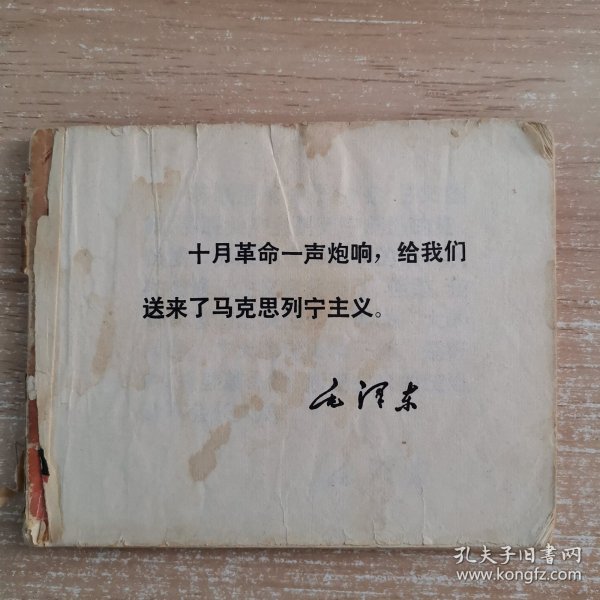 十月革命一声炮响，给我们
送来了马克思列宁主义。
毛泽东
孔夫子旧书网
www.kongfz.com